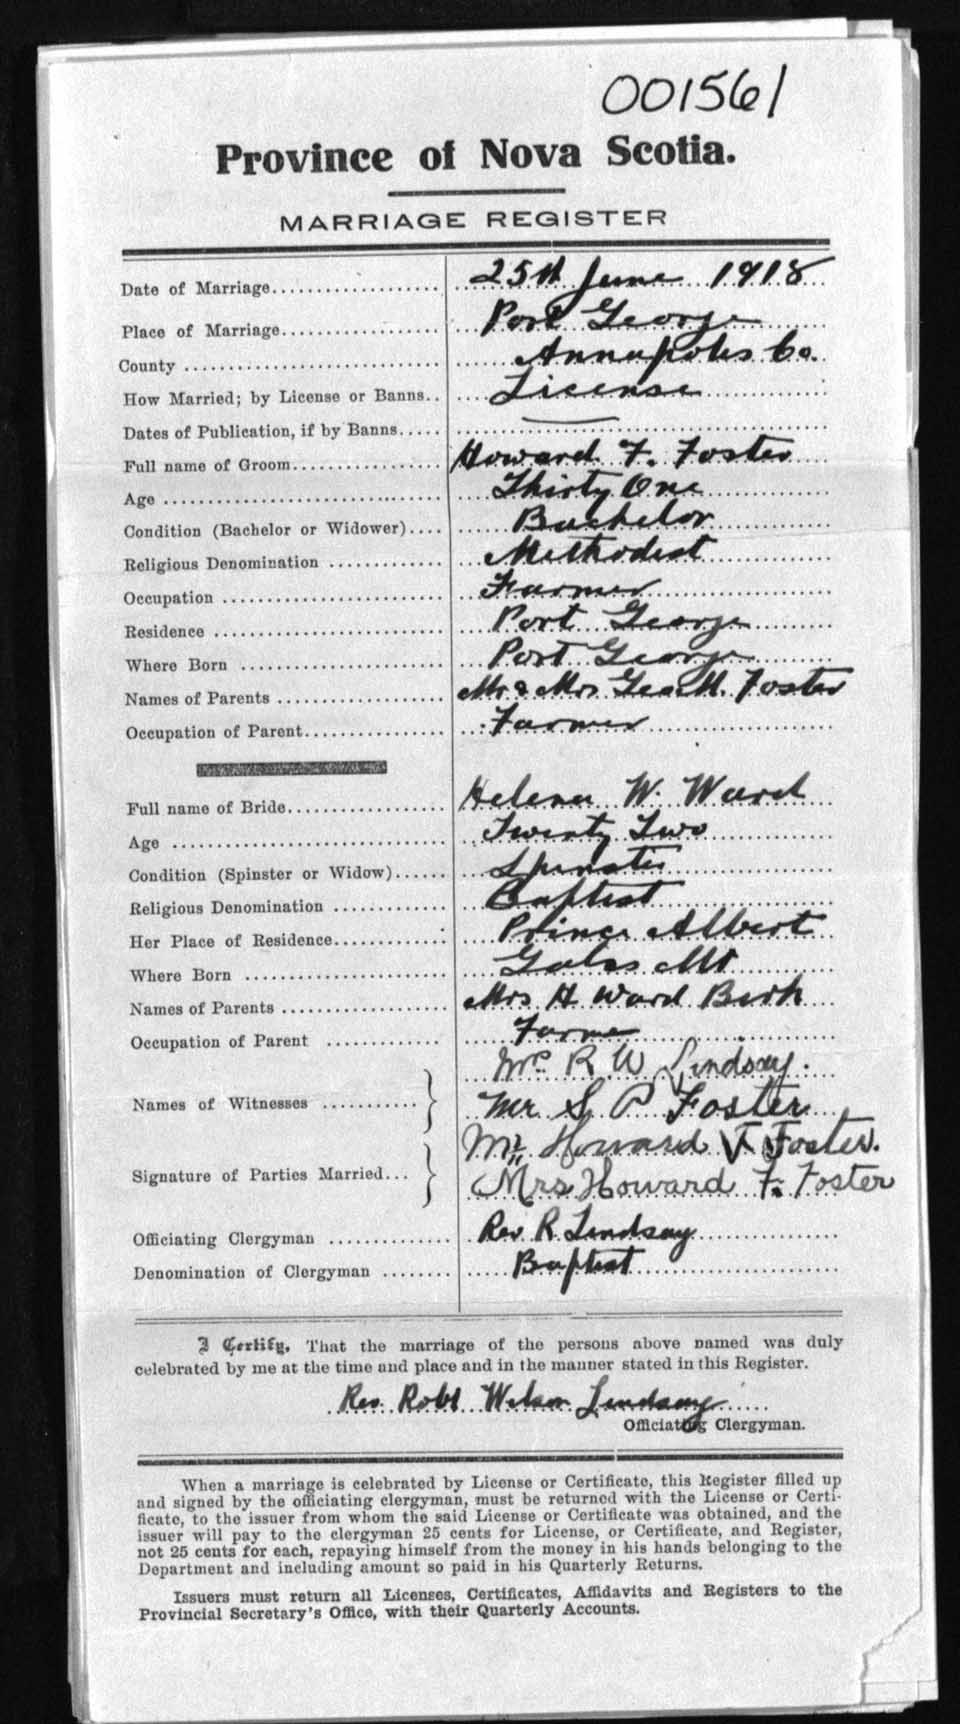 001561
Province of Nova Scotia.
MARRIAGE REGISTER
Date of Marriage 25th June 1918
Place of Marriage Port George
County Annapolis Co.
How Married; by License or Banns License
Dates of Publication, if by Banns
Full name of Groom Howard F. Foster
Age Thirty One
Condition (Bachelor or Widower) Bachelor
Religious Denomination Methodist
Occupation Farmer
Residence Port George
Where Born Port George
Names of Parents Mr & Mrs Geo M. Foster
Occupation of Parent Farmer
Full name of Bride Helena W. Ward
Age Twenty Two
Condition (Spinster or Widow) Spinster
Religious Denomination Baptist
Her Place of Residence Prince Albert
Where Born Gates Mt
Names of Parents Mrs H Ward
Occupation of Parent Farmer
Mrs. R W Lindsay.
Names of Witnesses Mr S P Foster
Mr. Howard F. Foster.
Signature of Parties Married Mrs Howard F. Foster
Officiating Clergyman Rev R. Lindsay
Denomination of Clergyman Baptist
I Certify, That the marriage of the persons above named was duly
celebrated by me at the time and place and in the manner stated in this Register.
Rev. Robt Wilson Lindsay
Officiating Clergyman.
When a marriage is celebrated by License or Certificate, this Register filled up
and signed by the officiating clergyman, must be returned with the License or Certi-
ficate, to the issuer from whom the said License or Certificate was obtained, and the
issuer will pay to the clergyman 25 cents for License, or Certificate, and Register,
not 25 cents for each, repaying himself from the money in his hands belonging to the
Department and including amount so paid in his Quarterly Returns.
Issuers must return all Licenses, Certificates, Affidavits and Registers to the
Provincial Secretary's Office, with their Quarterly Accounts.